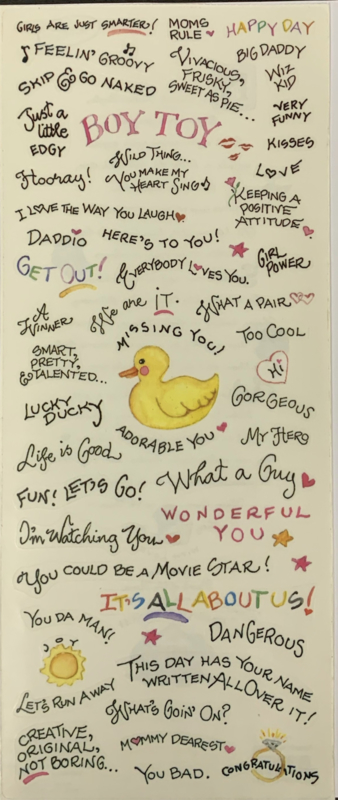 GIRLS ARE JUST SMARTER!
MOMS
RULE
HAPPY DAY
FEELIN' GROOVY
VIVACIOUS,
FRISKY,
SWEET AS PIE...
BIG DADDY
WIZ
KID
SKIP & GO NAKED
VERY
FUNNY
Just a
little
EDGY
BOY TOY
KISSES
WILD THING...
YOU MAKE MY
HEART SING
LOVE
Hooray!
KEEPING A
POSITIVE
ATTITUDE
I LOVE THE WAY YOU LAUGH
DADDIO
HERE'S TO YOU!
GIRL
POWER
GET OUT!
EVERYBODY LOVES YOU.
A
WINNER
We are IT.
WHAT A PAIR
MISSING YOU!
TOO COOL
SMART,
PRETTY,
& TALENTED...
Hi
LUCKY
DUCKY
GORGEOUS
ADORABLE YOU
MY HERO
Life is Good
FUN! LET'S GO!
What a Guy
WONDERFUL
YOU
I'm Watching You
YOU COULD BE A MOVIE STAR!
IT'S ALL ABOUT US!
YOU DA MAN!
DANGEROUS
THIS DAY HAS YOUR NAME
WRITTEN ALL OVER IT!
LET'S RUN AWAY
WHAT'S GOIN' ON?
CREATIVE,
ORIGINAL,
NOT BORING...
MOMMY DEAREST
YOU BAD.
CONGRATULATIONS